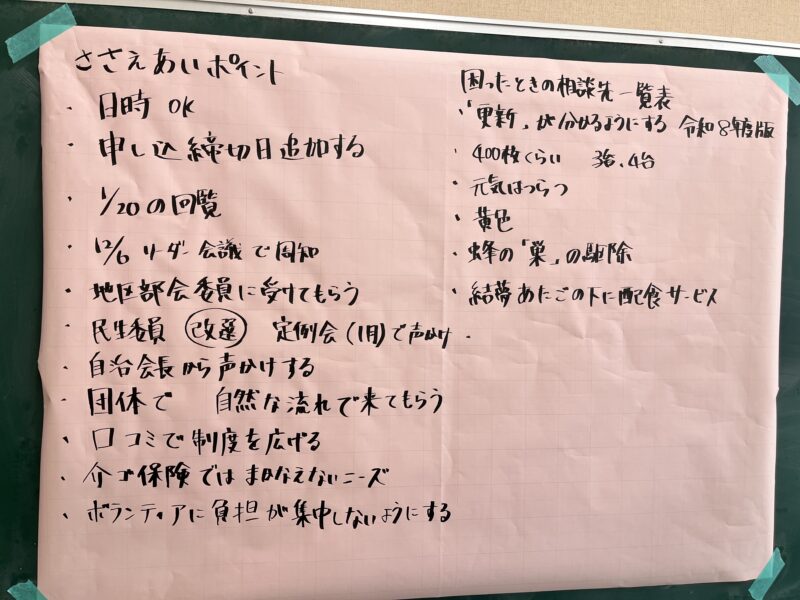 ささえあいポイント
・日時 OK
・申し込締切日追加する
・1/20の回覧
・12/6 リーダー会議で周知
・地区部会委員に受けてもらう
・民生委員 改選 定例会(1月)で声かけ.
・自治会長から声かけする
・団体で 自然な流れで来てもらう
・口コミで制度を広げる
・介ゴ保険ではまかなえないニーズ
・ボランティアに負担が集中しないようにする
困ったときの相談先一覧表
・「更新」が分かるようにする 令和8年度版
・400枚くらい 3台、4台
・元気はつらつ
・黄色
・蜂の「巣」の駆除
・結夢あたごの下に配食サービス